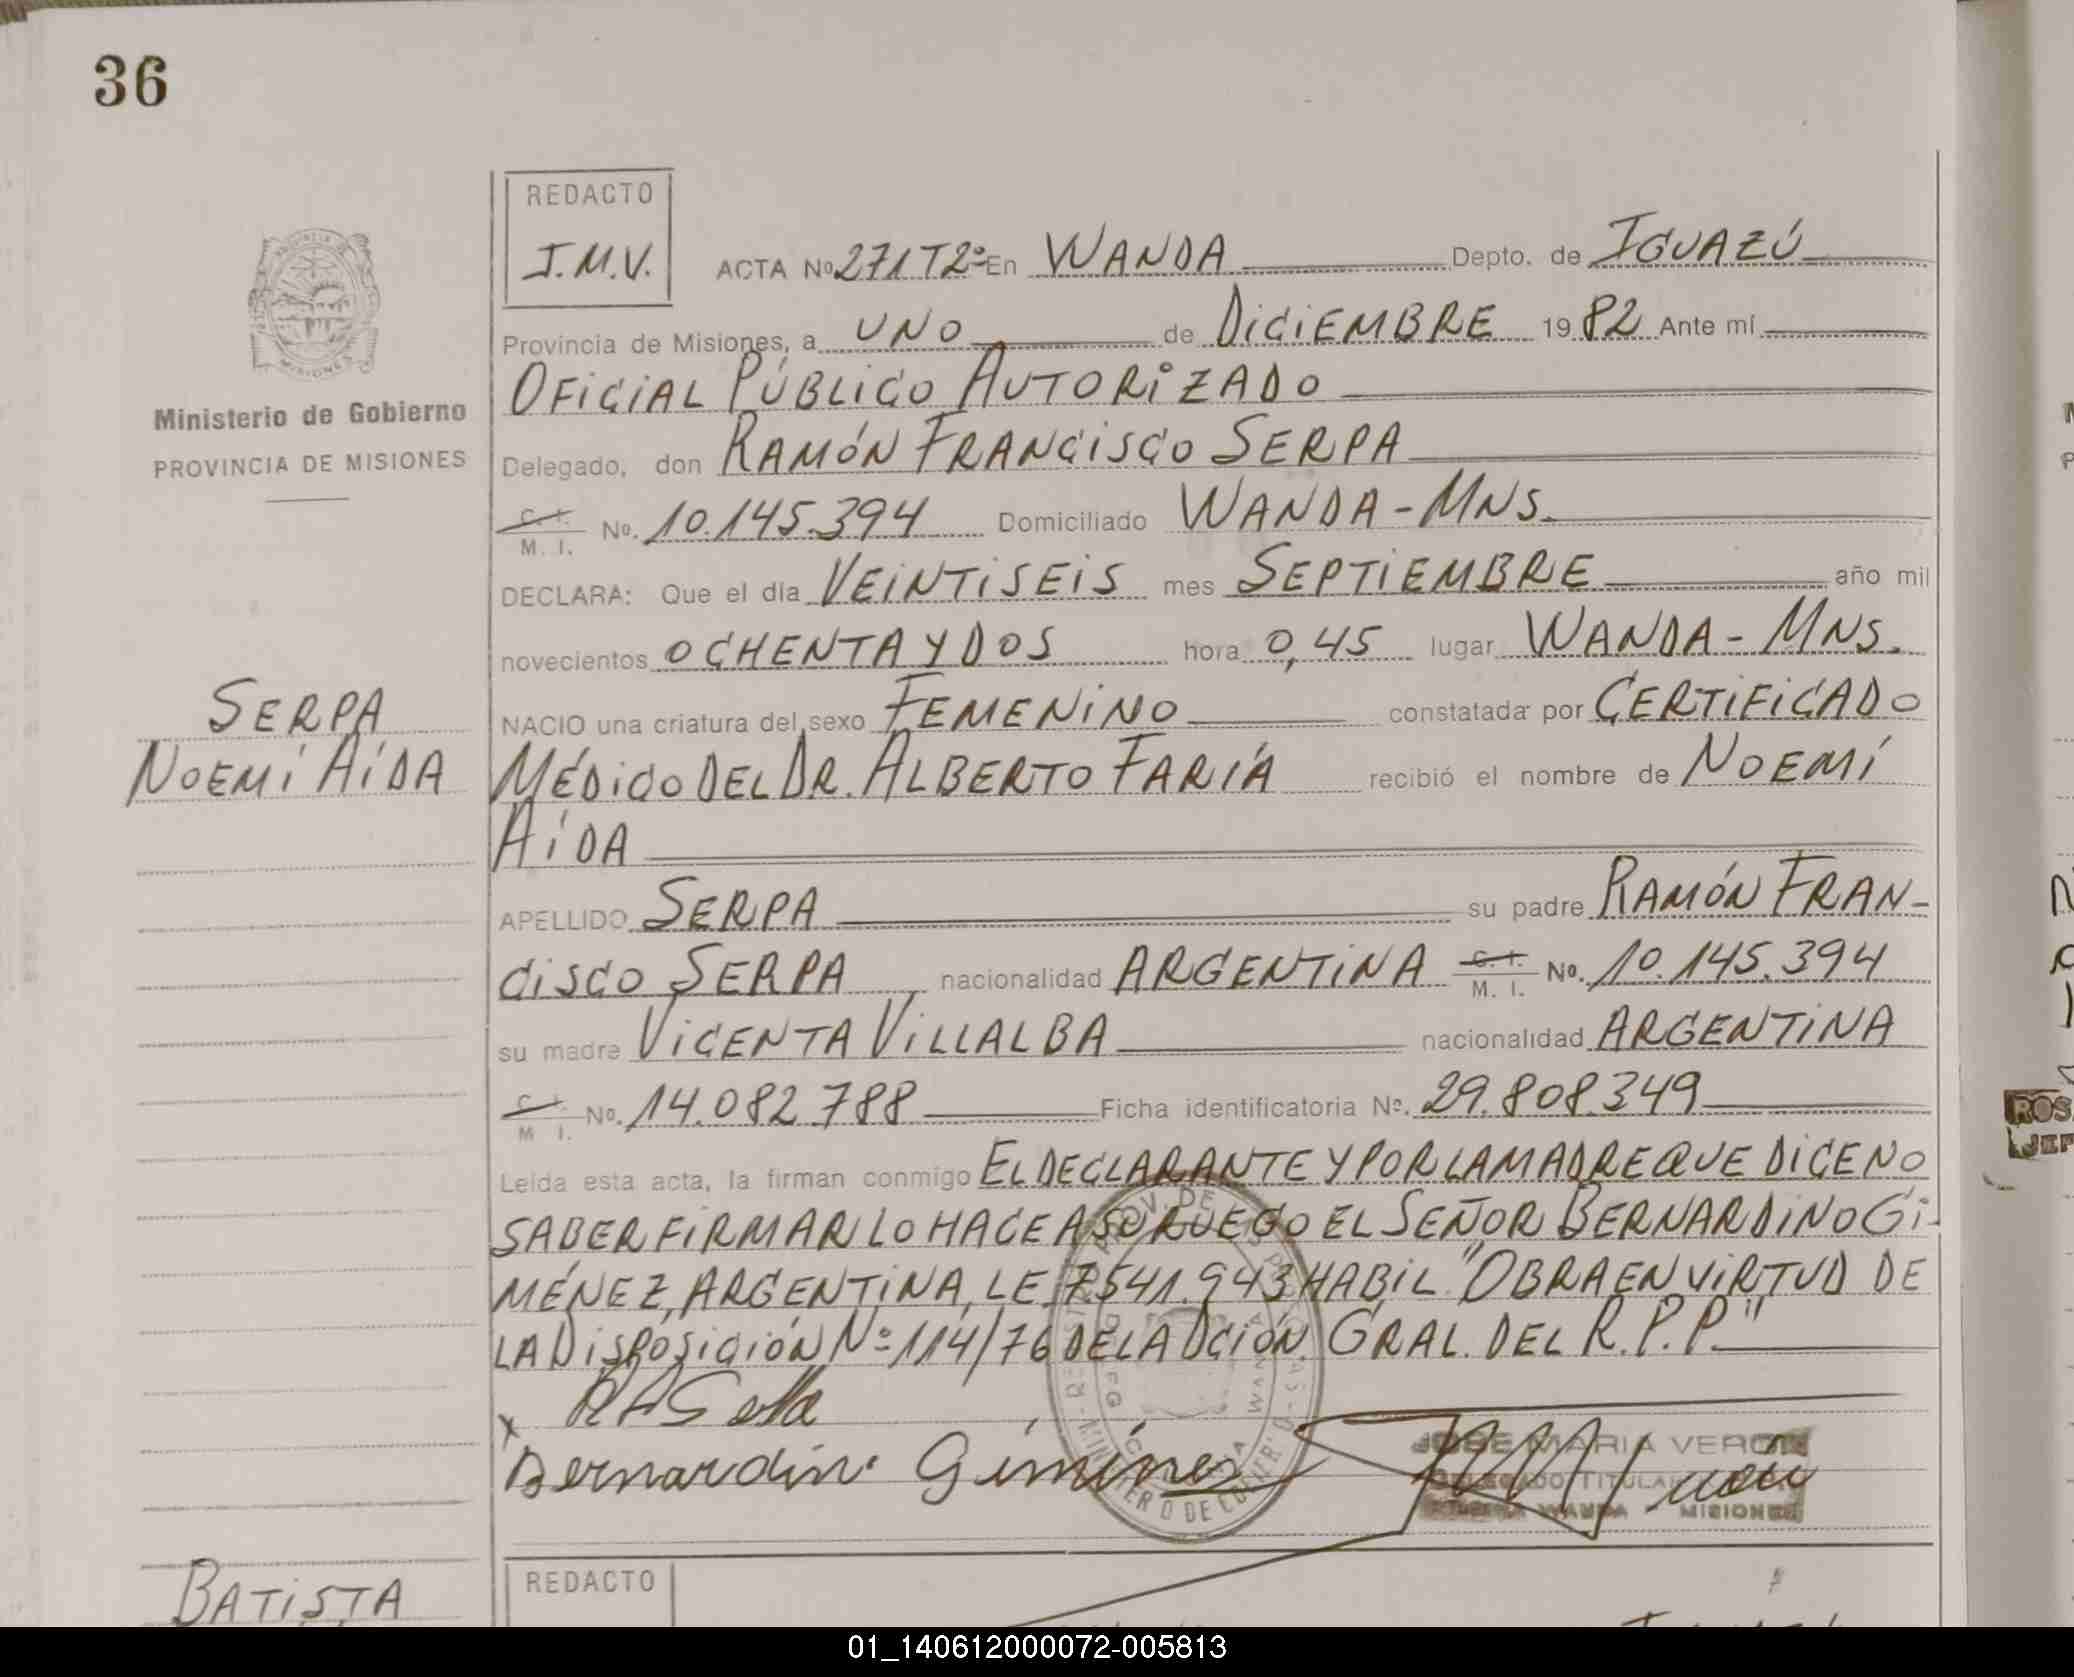 36
REDACTO
J.M.V.
ACTA Nº 271 T2º En WANDA Depto. de IGUAZÚ
Provincia de Misiones, a UNO de DICIEMBRE 1982 Ante mí
OFICIAL PÚBLICO AUTORIZADO
Ministerio de Gobierno
PROVINCIA DE MISIONES
Delegado, don RAMÓN FRANCISCO SERPA
C. I. M. I. No. 10.145.394 Domiciliado WANDA - MNS.
DECLARA: Que el día VEINTISEIS mes SEPTIEMBRE año mil
novecientos OCHENTA Y DOS hora 0,45 lugar WANDA - MNS.
SERPA
NOEMÍ AÍDA
NACIO una criatura del sexo FEMENINO constatada por CERTIFICADO
MÉDICO DEL DR. ALBERTO FARÍA recibió el nombre de NOEMÍ
AÍDA
APELLIDO SERPA su padre RAMÓN FRAN-
CISCO SERPA nacionalidad ARGENTINA C. I. M. I. No. 10.145.394
su madre VICENTA VILLALBA nacionalidad ARGENTINA
C. I. M I. No. 14.082.788 Ficha identificatoria No. 29.808.349
Leída esta acta, la firman conmigo EL DECLARANTE Y POR LA MADRE QUE DICE NO
SABER FIRMAR LO HACE A SU RUEGO EL SEÑOR BERNARDINO GI-
MÉNEZ, ARGENTINA, LE 7.541.943 HABIL "OBRA EN VIRTUD DE
LA DISPOSICIÓN Nº 114/76 DE LA DCIÓN. GRAL. DEL R.P.P."
Bernardino Giménez
JOSE MARIA VERON
DELEGADO TITULAR
WANDA MISIONES
REDACTO
BATISTA
01_140612000072-005813